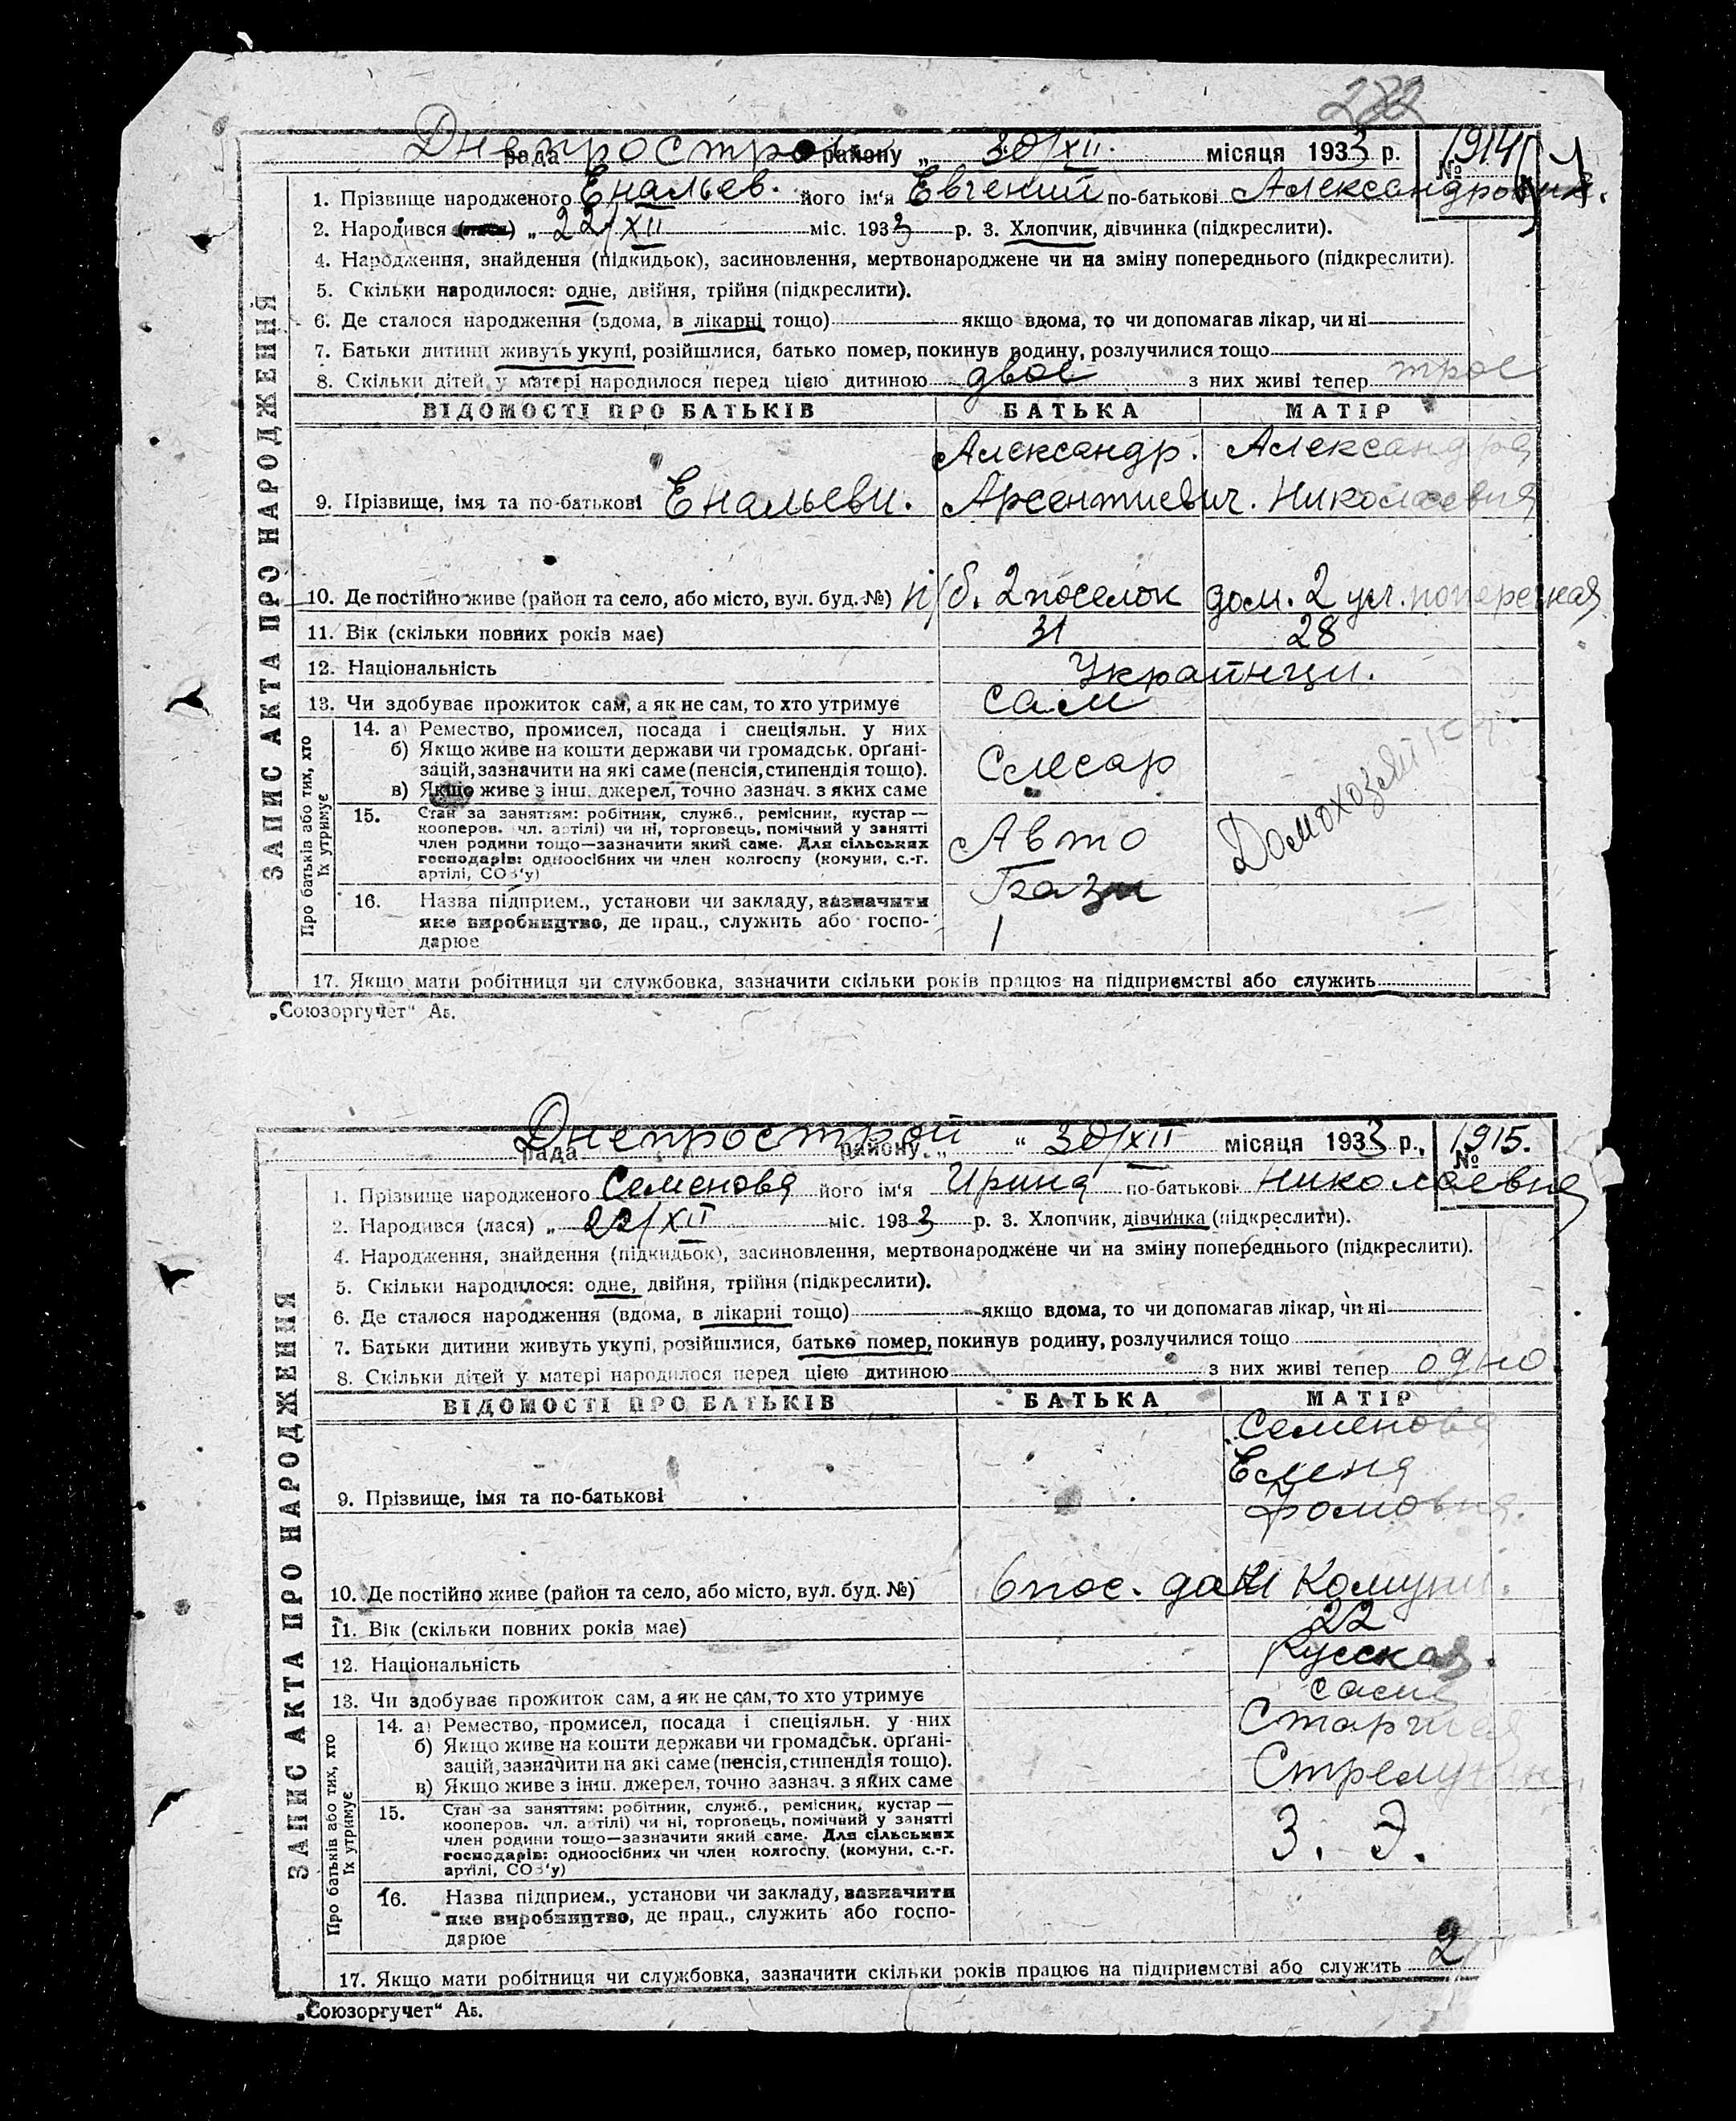 282
Днепрострой
рада району „ 30/XII. місяця 1933 р. № 1914
ЗАПИС АКТА ПРО НАРОДЖЕННЯ
1. Прізвище народженого Енальев. його ім‘я Евгений по-батькові Александрович.
2. Народився „ 22/XII міс. 1933 р. 3. Хлопчик, дівчинка (підкреслити).
4. Народження, знайдення (підкидьок), засиновлення, мертвонароджене чи на зміну попереднього (підкреслити).
5. Скільки народилося: одне, двійня, трійня (підкреслити).
6. Де сталося народження (вдома, в лікарні тощо) якщо вдома, то чи допомагав лікар, чи ні
7. Батьки дитини живуть укупі, розійшлися, батько помер, покинув родину, розлучилися тощо
8. Скільки дітей у матері народилося перед цією дитиною двое з них живі тепер трое
ВІДОМОСТІ ПРО БАТЬКІВ БАТЬКА МАТІР
Александр. Александра
9. Прізвище, імя та по-батькові Енальеви. Арсентиевич. Николаевна
10. Де постійно живе (район та село, або місто, вул. буд. №) п/б. 2 поселок дом. 2 ул. поперечная
11. Вік (скільки повних років має) 31 28
12. Національність Украінци.
13. Чи здобуває прожиток сам, а як не сам, то хто утримує сам
Про батьків або тих, хто їх утримує
14. а) Ремество, промисел, посада і спеціяльн. у них
б) Якщо живе на кошти держави чи громадськ. орґані-
зацій, зазначити на які саме (пенсія, стипендія тощо). Слесар
в) Якщо живе з інш. джерел, точно зазнач. з яких саме
Домохозяйка.
15. Стан за заняттям: робітник, служб., ремісник, кустар —
кооперов. чл. артілі) чи ні, торговець, помічний у занятті
член родини тощо—зазначити який саме. Для сільських Авто
господарів: одноосібних чи член колгоспу (комуни, с.-г.
артілі, СОЗ‘у)
База
16. Назва підприєм., установи чи закладу, зазначити
яке виробництво, де прац., служить або госпо-
дарює 1
17. Якщо мати робітниця чи службовка, зазначити скільки років працює на підприємстві або служить
„Союзоргучет“ Аб.
Днепрострой
рада району „ “ 30/XII місяця 1933 р., № 1915.
ЗАПИС АКТА ПРО НАРОДЖЕННЯ
1. Прізвище народженого Семенова його ім‘я Ирина по-батькові Николаевна
2. Народився (лася) „ 22/XII міс. 1933 р. 3. Хлопчик, дівчинка (підкреслити).
4. Народження, знайдення (підкидьок), засиновлення, мертвонароджене чи на зміну попереднього (підкреслити).
5. Скільки народилося: одне, двійня, трійня (підкреслити).
6. Де сталося народження (вдома, в лікарні тощо) якщо вдома, то чи допомагав лікар, чи ні
7. Батьки дитини живуть укупі, розійшлися, батько помер, покинув родину, розлучилися тощо
8. Скільки дітей у матері народилося перед цією дитиною з них живі тепер одно
ВІДОМОСТІ ПРО БАТЬКІВ БАТЬКА МАТІР
Семенова
Елена
9. Прізвище, імя та по-батькові Фомовна.
10. Де постійно живе (район та село, або місто, вул. буд. №) 6 пос. дом Комуни.
11. Вік (скільки повних років має) 22
12. Національність Русская.
13. Чи здобуває прожиток сам, а як не сам, то хто утримує сама
Про батьків або тих, хто їх утримує
14. а) Ремество, промисел, посада і спеціяльн. у них Старшая
б) Якщо живе на кошти держави чи громадськ. орґані-
зацій, зазначити на які саме (пенсія, стипендія тощо).
в) Якщо живе з інш. джерел, точно зазнач. з яких саме
15. Стан за заняттям: робітник, служб., ремісник, кустар —
кооперов. чл. артілі) чи ні, торговець, помічний у занятті
член родини тощо—зазначити який саме. Для сільських З. Э.
господарів: одноосібних чи член колгоспу, (комуни, с.-г.
артілі, СОЗ‘у)
16. Назва підприєм., установи чи закладу, зазначити
яке виробництво, де прац., служить або госпо-
дарює
17. Якщо мати робітниця чи службовка, зазначити скільки років працює на підприємстві або служить 2
„Союзоргучет“ Аб.